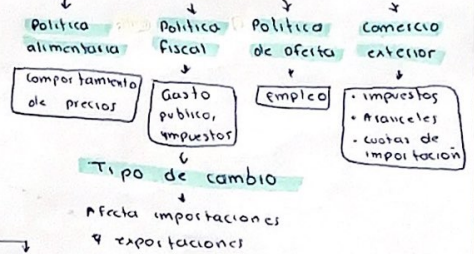 Política
alimentaria
comportamiento
de precios
Política
fiscal
Gasto
publico,
impuestos
Política
de oferta
Empleo
comercio
exterior
• impuestos
• Aranceles
• cuotas de
importación
Tipo de cambio
Afecta importaciones
y exportaciones